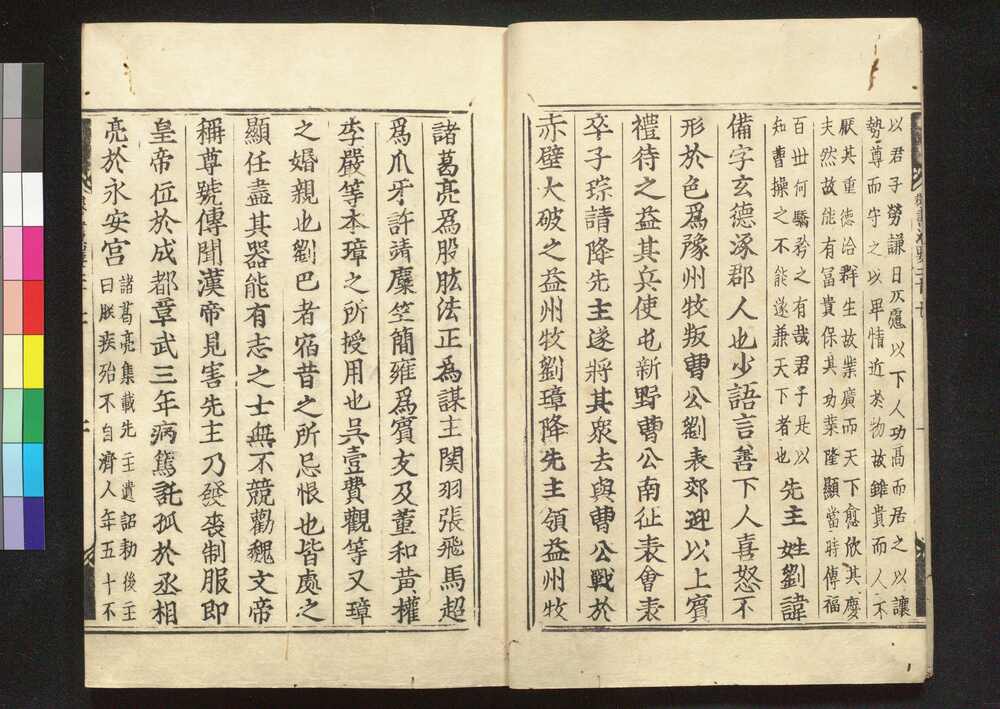 以君子勞謙日仄慮以下人功髙而居之以讓
勢尊而守之以卑情近於物故雖貴而人不
厭其重德洽群生故業廣而天下愈欣其慶
夫然故能有冨貴保其功業隆顯當時傳福
百丗何驕矜之有哉君子是以
知曹操之不能遂兼天下者也
先主姓劉諱
備字玄德涿郡人也少語言善下人喜怒不
形於色爲豫州牧叛曹公劉表郊迎以上賓
禮待之益其兵使屯新野曹公南征表會表
卒子琮請降先主遂將其衆去與曹公戰於
赤壁大破之益州牧劉璋降先主領益州牧
諸葛亮爲股肱法正爲謀主関羽張飛馬超
爲爪牙許靖麋笁簡雍爲賓友及董和黃權
李嚴等本璋之所授用也吳壹費觀等又璋
之婚親也劉巴者宿昔之所忌恨也皆處之
顯任盡其器能有志之士無不競勸魏文帝
稱尊號傳聞漢帝見害先主乃發喪制服即
皇帝位於成都章武三年病篤託孤於丞相
亮於永安宮
諸葛亮集載先主遺詔勑後主
曰朕疾殆不自濟人年五十不